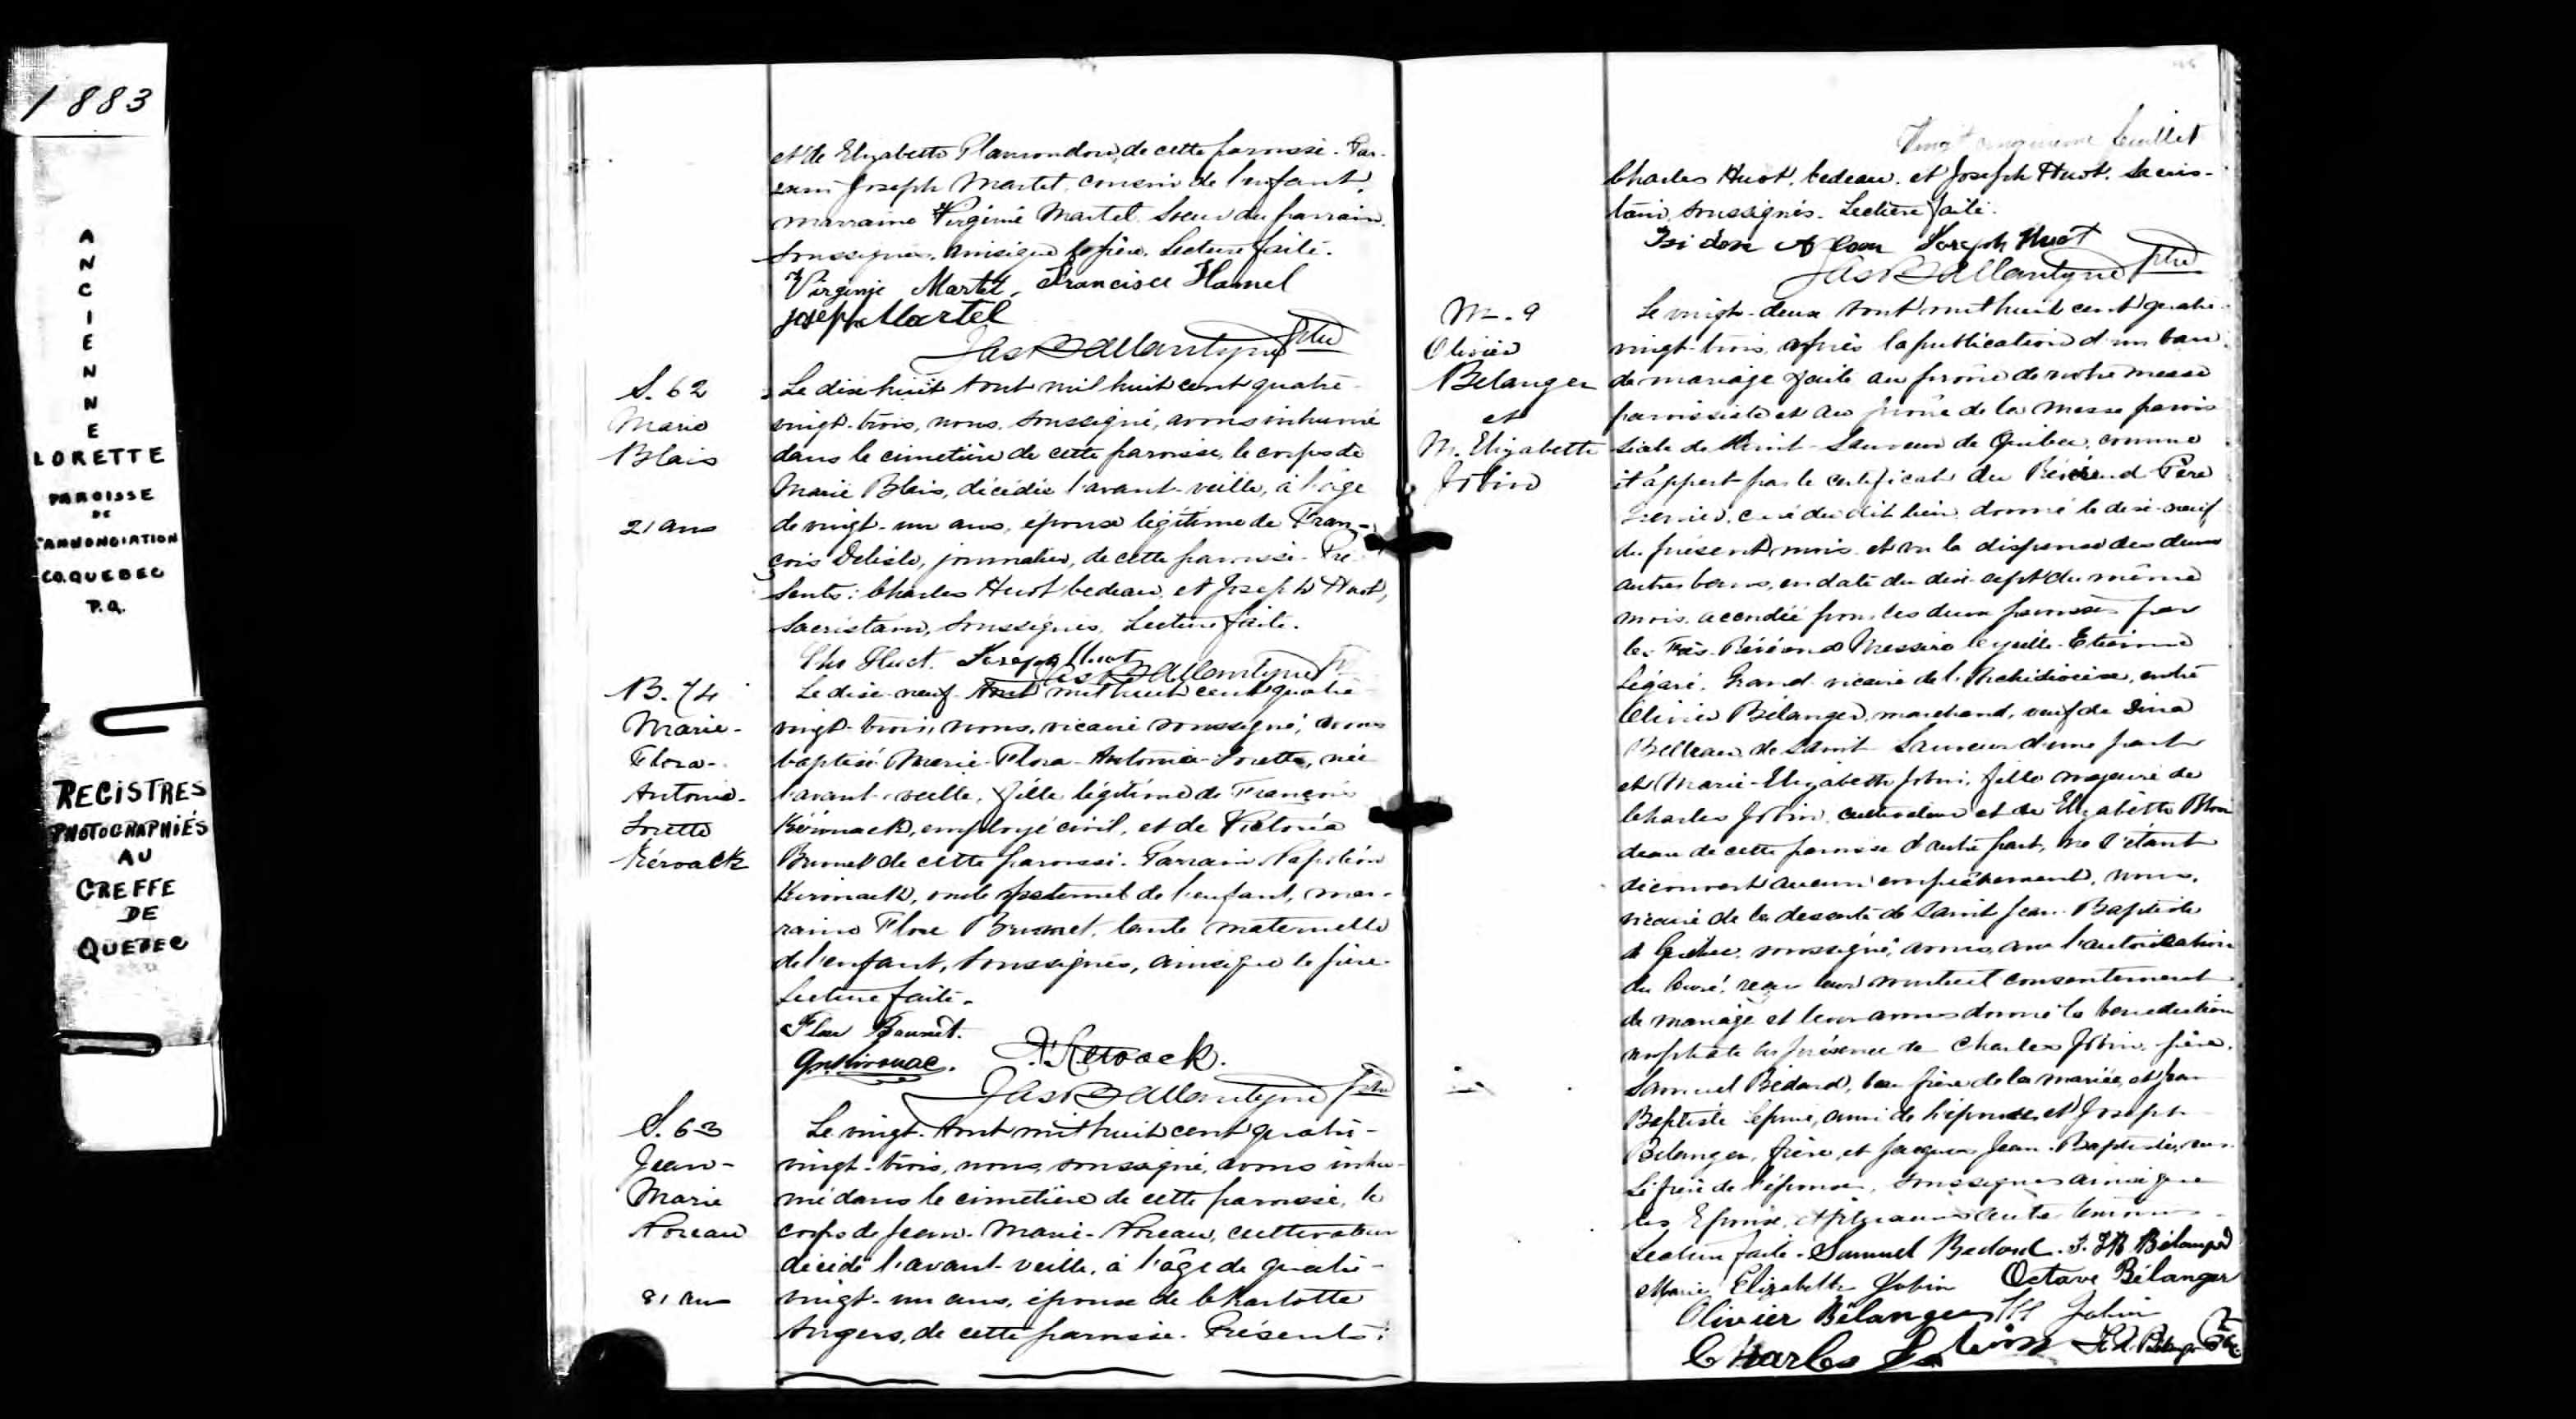 1883
ANCIENNE
LORETTE
PAROISSE
DE
L'ANNONCIATION
CO. QUEBEC
P.Q.
REGISTRES
PHOTOGRAPHIÉS
AU
GREFFE
DE
QUEBEC
et de Elizabeth Plamondon, de cette paroisse. Par-
rain Joseph Martel, cousin de l'enfant,
marraine Virginie Martel, soeur du parrain
soussignés, ainsi que le père. Lecture faite.
Virginie Martel, Francis Hamel
Joseph Martel
Jas Ballantyne Ptre
S. 62
Marie
Blais
21 ans
Le dix huit Aout mil huit cent quatre-
vingt-trois, nous, soussigné, avons inhumé
dans le cimetière de cette paroisse, le corps de
Marie Blais, décédée l'avant-veille, à l'âge
de vingt-un ans, épouse légitime de Fran-
çois Delisle, journalier, de cette paroisse. Pré-
sents: Charles Huot bedeau, et Joseph Huot,
sacristain, soussignés. Lecture faite.
Chs Huot. Joseph Huot
Jas Ballantyne Ptre
B. 74
Marie-
Flora-
Antonia-
Lorette
Kérouack
Le dix-neuf Aout mil huit cent quatre-
vingt-trois, nous, vicaire soussigné, avons
baptisé Marie-Flora-Antonia-Lorette, née
l'avant-veille, fille légitime de François
Kérouack, employé civil, et de Victoria
Brunet de cette paroisse. Parrain Napoléon
Kérouack, oncle paternel de l'enfant, mar-
raine Flore Brunet, tante maternelle
de l'enfant, soussignés, ainsi que le père.
Lecture faite.
Flore Brunet.
Kirouac. Kerouack.
Jas Ballantyne Ptre
S. 63
Jean-
Marie
Noreau
81 ans
Le vingt Aout mil huit cent quatre-
vingt-trois, nous, soussigné, avons inhu-
mé dans le cimetière de cette paroisse, le
corps de Jean-Marie-Noreau, cultivateur
décédé l'avant-veille, à l'âge de quatre-
vingt-un ans, époux de Charlotte
Angers, de cette paroisse. Présents:
Vingt cinquieme feuillet
Charles Huot, bedeau, et Joseph Huot, sacris-
tain, soussignés. Lecture faite.
Isidore Joseph Huot
Jas Ballantyne Ptre
M. 9
Olivier
Belanger
et
M. Elizabeth
Jobin
Le vingt-deux Aout mil huit cent quatre-
vingt-trois, après la publication d'un ban
de mariage faite au prône de notre messe
paroissiale et au prône de la messe parois
siale de Saint-Sauveur de Québec, comme
il appert par le certificat du Révérend Père
curé du dit lieu, donné le dix-neuf
du présent mois, et vu la dispense des deux
autres bans, en date du dix-sept du même
mois, accordée pour les deux paroisses par
le Très-Révérend Messire Cyrille-Etienne
Légaré, Grand-vicaire de l'Archidiocèse, entre
Olivier Bélanger, marchand, veuf de Dina
Belleau, de Saint-Sauveur d'une part
et Marie-Elizabeth Jobin, fille majeure de
Charles Jobin, cultivateur et de Elizabeth Blon
deau de cette paroisse d'autre part, ne s'étant
découvert aucun empêchement, nous,
vicaire de la desserte de Saint Jean-Baptiste
de Québec, soussigné, avons, avec l'autorisation
du Curé, reçu leur mutuel consentement
de mariage et leur avons donné la bénédiction
nuptiale en présence de Charles Jobin, père,
Samuel Bédard, beau frère de la mariée, et Jean
Baptiste ami de l'épouse et Joseph
Belanger, frère, et Jacques Jean-Baptiste, aus-
si frère de l'époux, soussignés ainsi que
les Epoux, et plusieurs autres témoins.
Lecture faite. Samuel Bedard. J. J B Bélanger
Marie Elizabeth Jobin Octave Bélanger
Olivier Bélanger Jobin
Charles Jobin Ptre